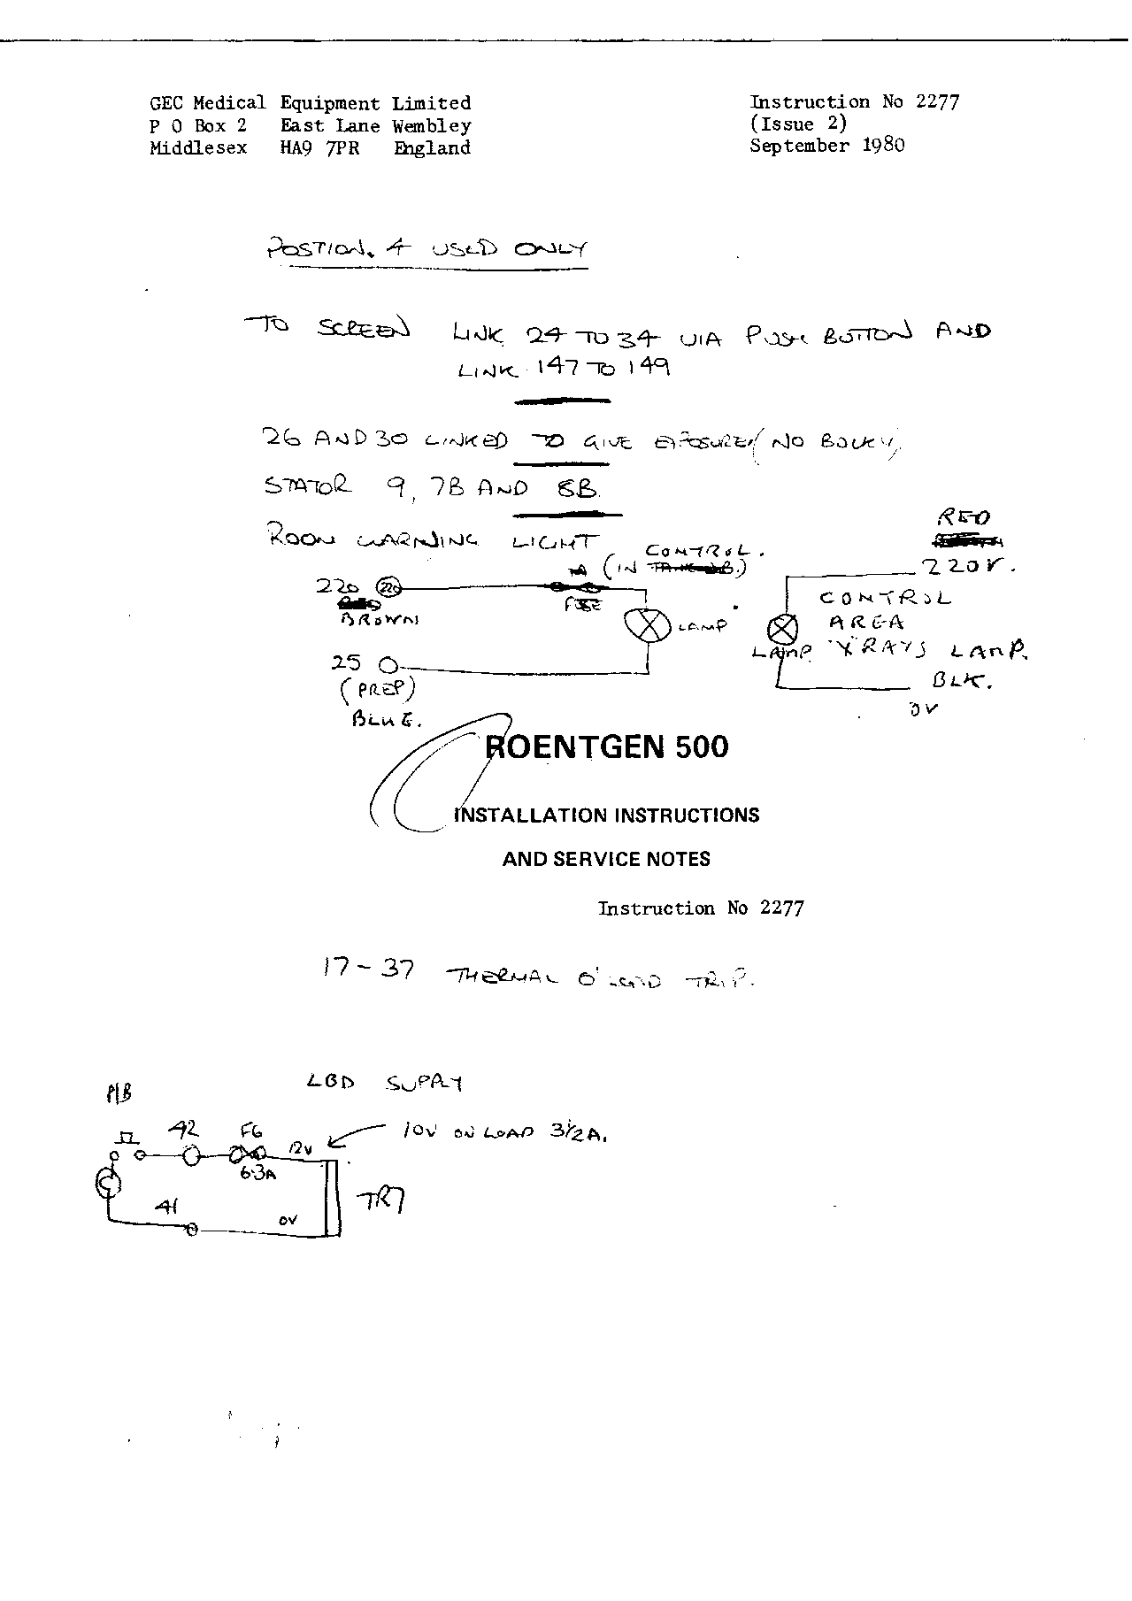 GEC Medical Equipment Limited
P O Box 2 East Lane Wembley
Middlesex HA9 7PR England
Instruction No 2277
(Issue 2)
September 1980
POSTION. 4 USED ONLY
TO SCREEN LINK 24 TO 34 VIA PUSH BUTTON AND
LINK 147 TO 149
26 AND 30 LINKED TO GIVE EXPOSURE (NO BUCKY)
STATOR 9, 7B AND 8B.
ROOM WARNING LIGHT
CONTROL.
(IN
220 220
BROWN
FUSE
LAMP
25
(PREP)
BLUE.
RED
220V.
CONTROL
AREA
LAMP. "X RAYS LAMP.
BLK.
0V
ROENTGEN 500
INSTALLATION INSTRUCTIONS
AND SERVICE NOTES
Instruction No 2277
17-37 THERMAL O'LOAD TRIP.
LBD SUPPLY
P/B
42 F6 12V
10V ON LOAD 3½A.
6·3A
41 0V
TR7